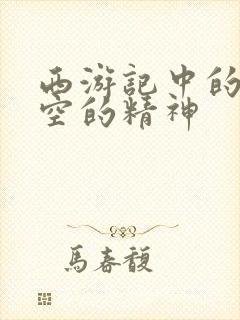 西游記中的
空的精神
馬春馥